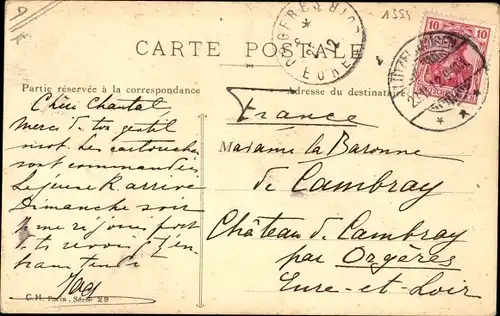 1554
CARTE POSTALE
Partie réservée à la correspondance
Adresse du destinataire
10 10
Chère Chantal
Merci de ton gentil
mot. Les cartouches
sont commandées
Le jeune R arrive
Dimanche soir
je me réjouis fort
te revoir et t'en
tendre
France
Madame la Baronne
de Cambray
Château de Cambray
par Orgères
Eure-et-Loir
C.H. Paris. Série 29